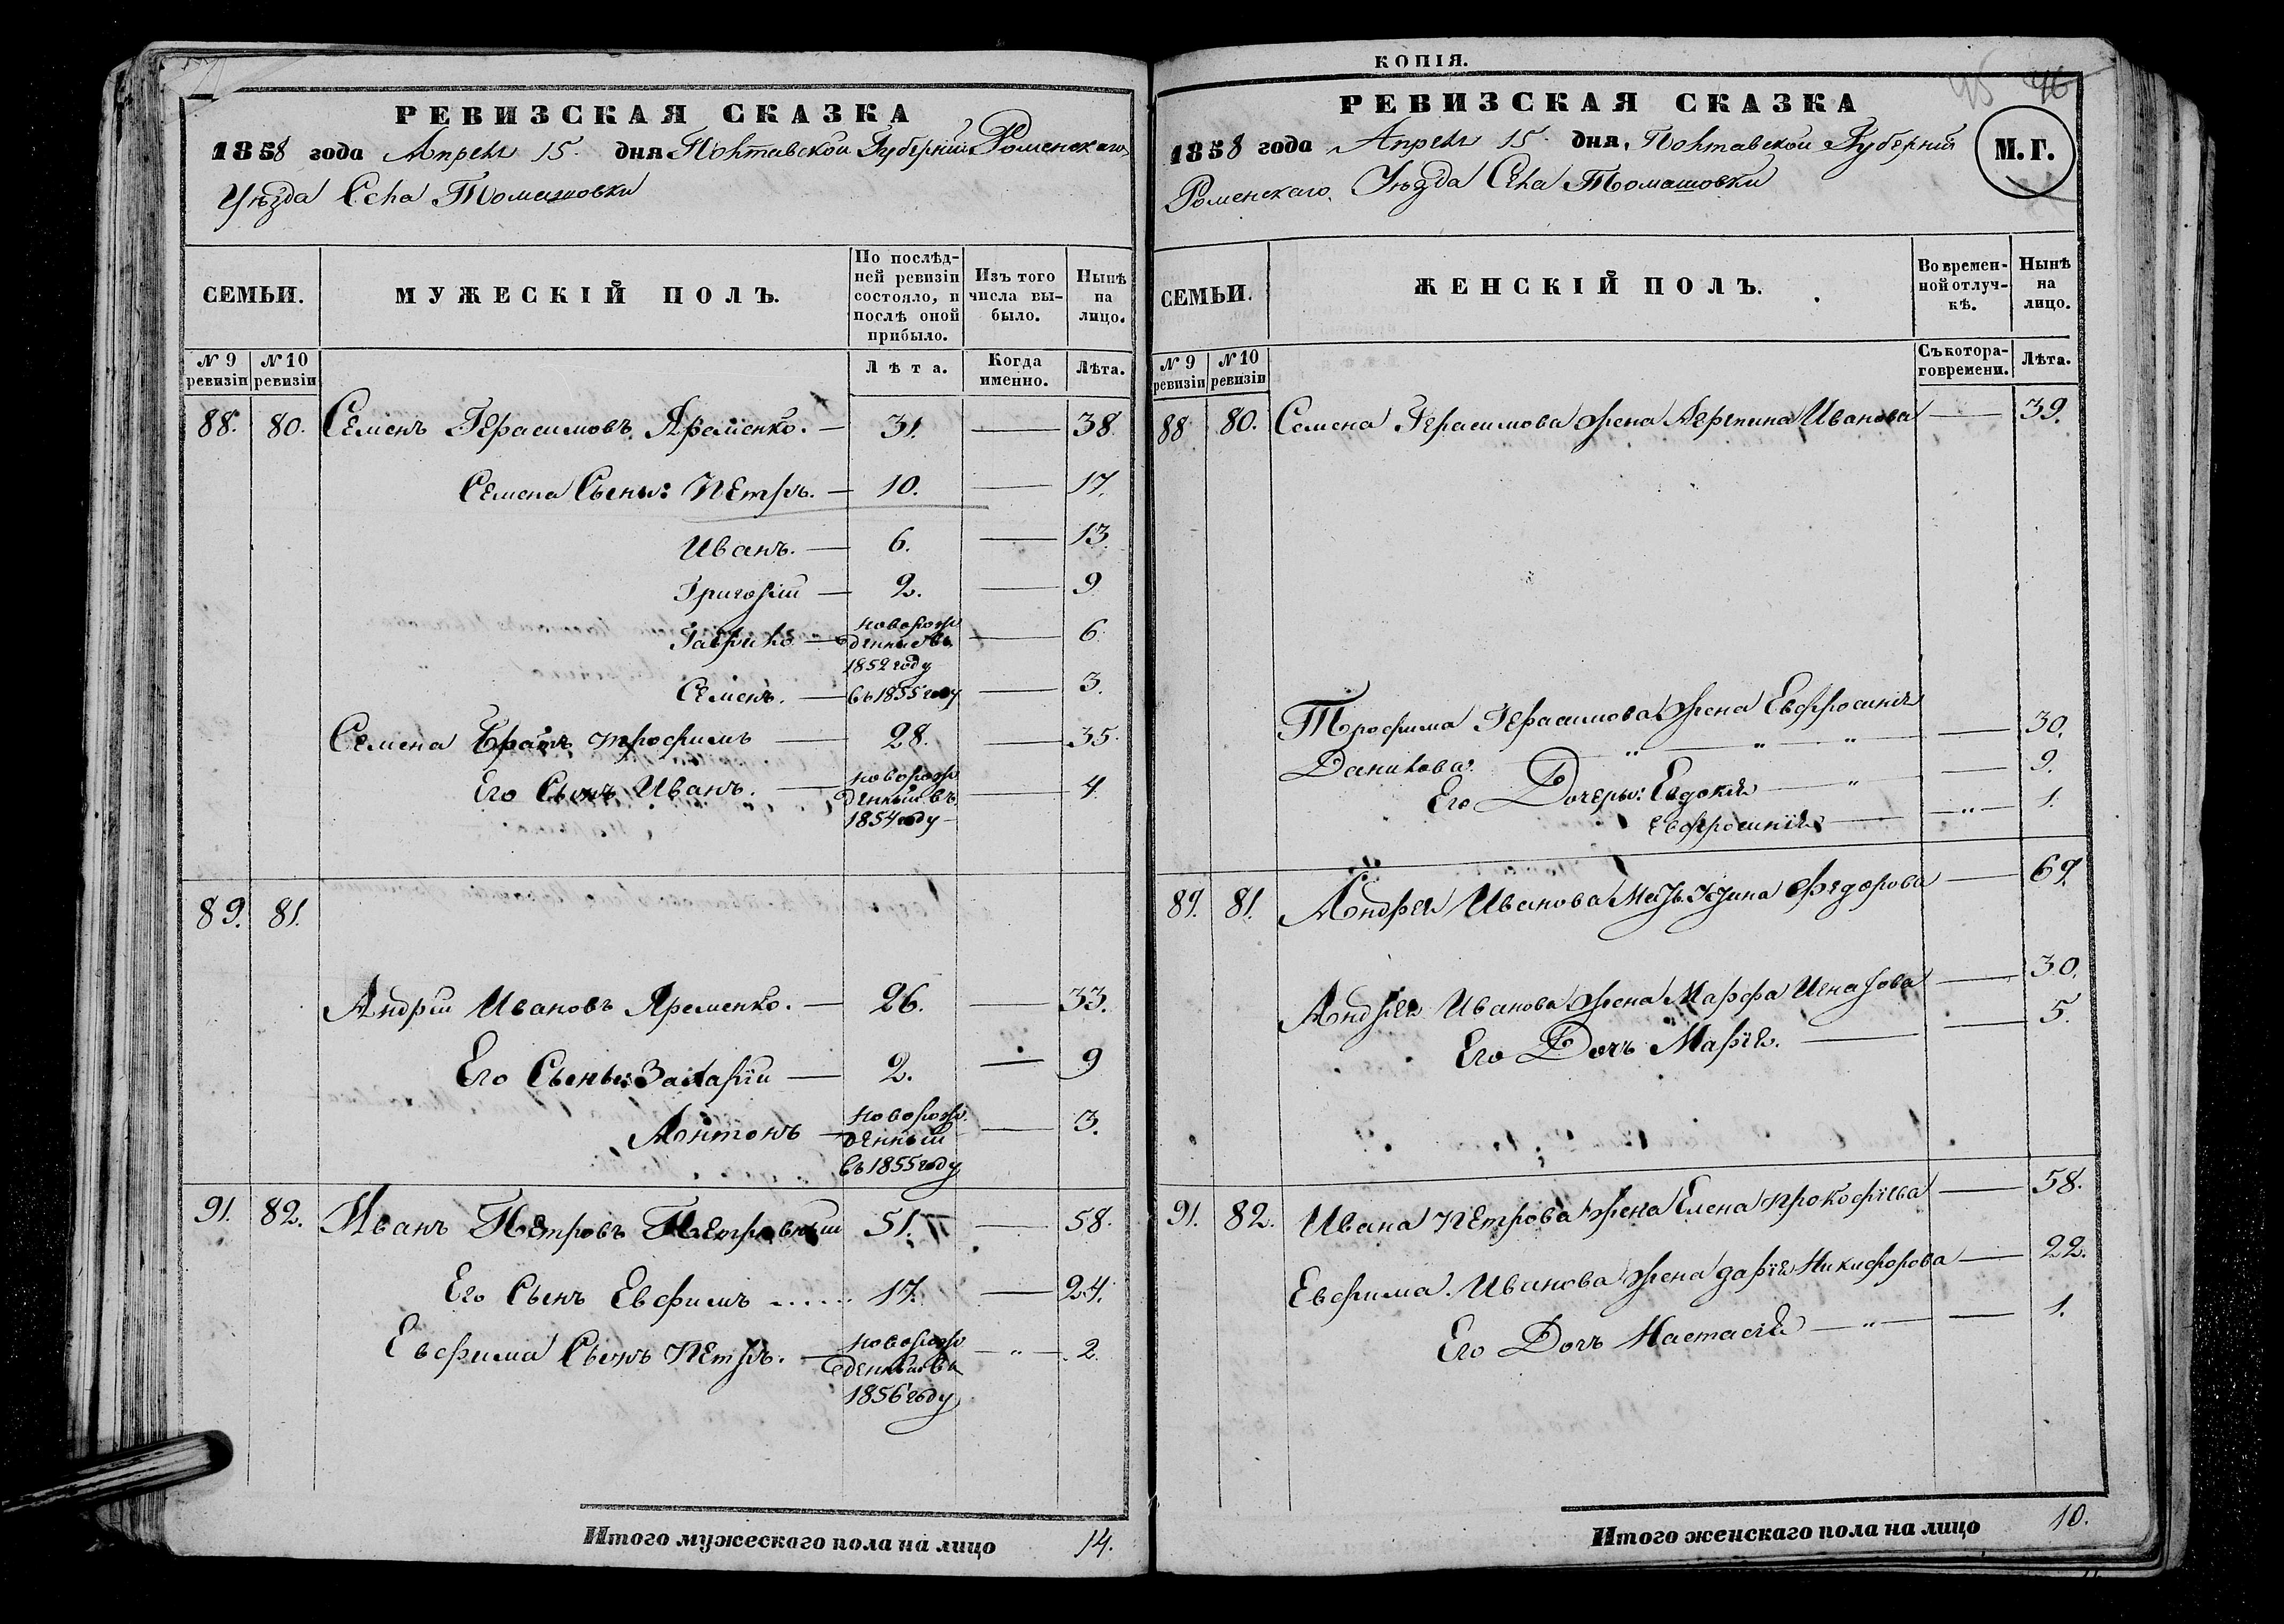 РЕВИЗСКАЯ СКАЗКА
1858 года Апреля 15 дня Полтавской Губерніи Роменскаго
Уѣзда Села Томашовки
СЕМЬИ.
МУЖЕСКІЙ ПОЛЪ.
По послѣд-
ней ревизіи
состояло, и
послѣ оной
прибыло.
Изъ того
числа вы-
было.
Нынѣ
на
лицо.
№ 9 ревизіи
№ 10 ревизіи
Лѣта.
Когда
именно.
Лѣта.
88. 80. Семенъ Герасимовъ Яременко. — 31. — 38.
Семена Сыны: Петръ. — 10. — 17.
Иванъ. — 6. — 13.
Григорій — 2. — 9
Гаврило — новорож
денный въ — 6.
1852 году
Семенъ. — въ 1855 году — 3.
Семена Братъ трофимъ — 28. — 35.
Его Сынъ Иванъ. — новорож
денный въ — 4.
1854 году
89. 81.
Андрій Ивановъ Яременко. — 26. — 33.
Его Сыны: Захарій — 2. — 9
Антонъ — новорож
денный — 3.
въ 1855 году
91. 82. Иванъ Петровъ Петровный 51. — 58.
Его Сынъ Евфимъ ..... 17. — 24.
Евфима Сынъ Петръ. — новорож
денный въ — " — 2.
1856 году
Итого мужескаго пола на лицо 14.
КОПІЯ.
95 96
РЕВИЗСКАЯ СКАЗКА
1858 года Апреля 15 дня, Полтавской Губерніи
М.Г.
Роменскаго Уѣзда Села Томашовки
СЕМЬИ.
ЖЕНСКІЙ ПОЛЪ.
Во времен-
ной отлуч-
кѣ.
Нынѣ
на
лицо.
№ 9 ревизіи
№ 10 ревизіи
Съ котора-
го времени.
Лѣта.
88 80. Семена Герасимова жена Агрепина Иванова — 39.
Трофима Герасимова жена Евфросинія
Данилова. " — " — " — 30.
Его Дочеры: Евдокія — " — 9.
Евфросинія — " — 1.
89. 81. Андрея Иванова Мать Федорова — 69.
Андрея Иванова жена Марфа Игнатова — 30.
Его Дочь Марія. — 5.
91. 82. Ивана Петрова жена Елена Прокофіева — 58.
Евфима Иванова жена дарія Никифорова — 22.
Его Дочь Настасія — " — 1.
Итого женскаго пола на лицо 10.